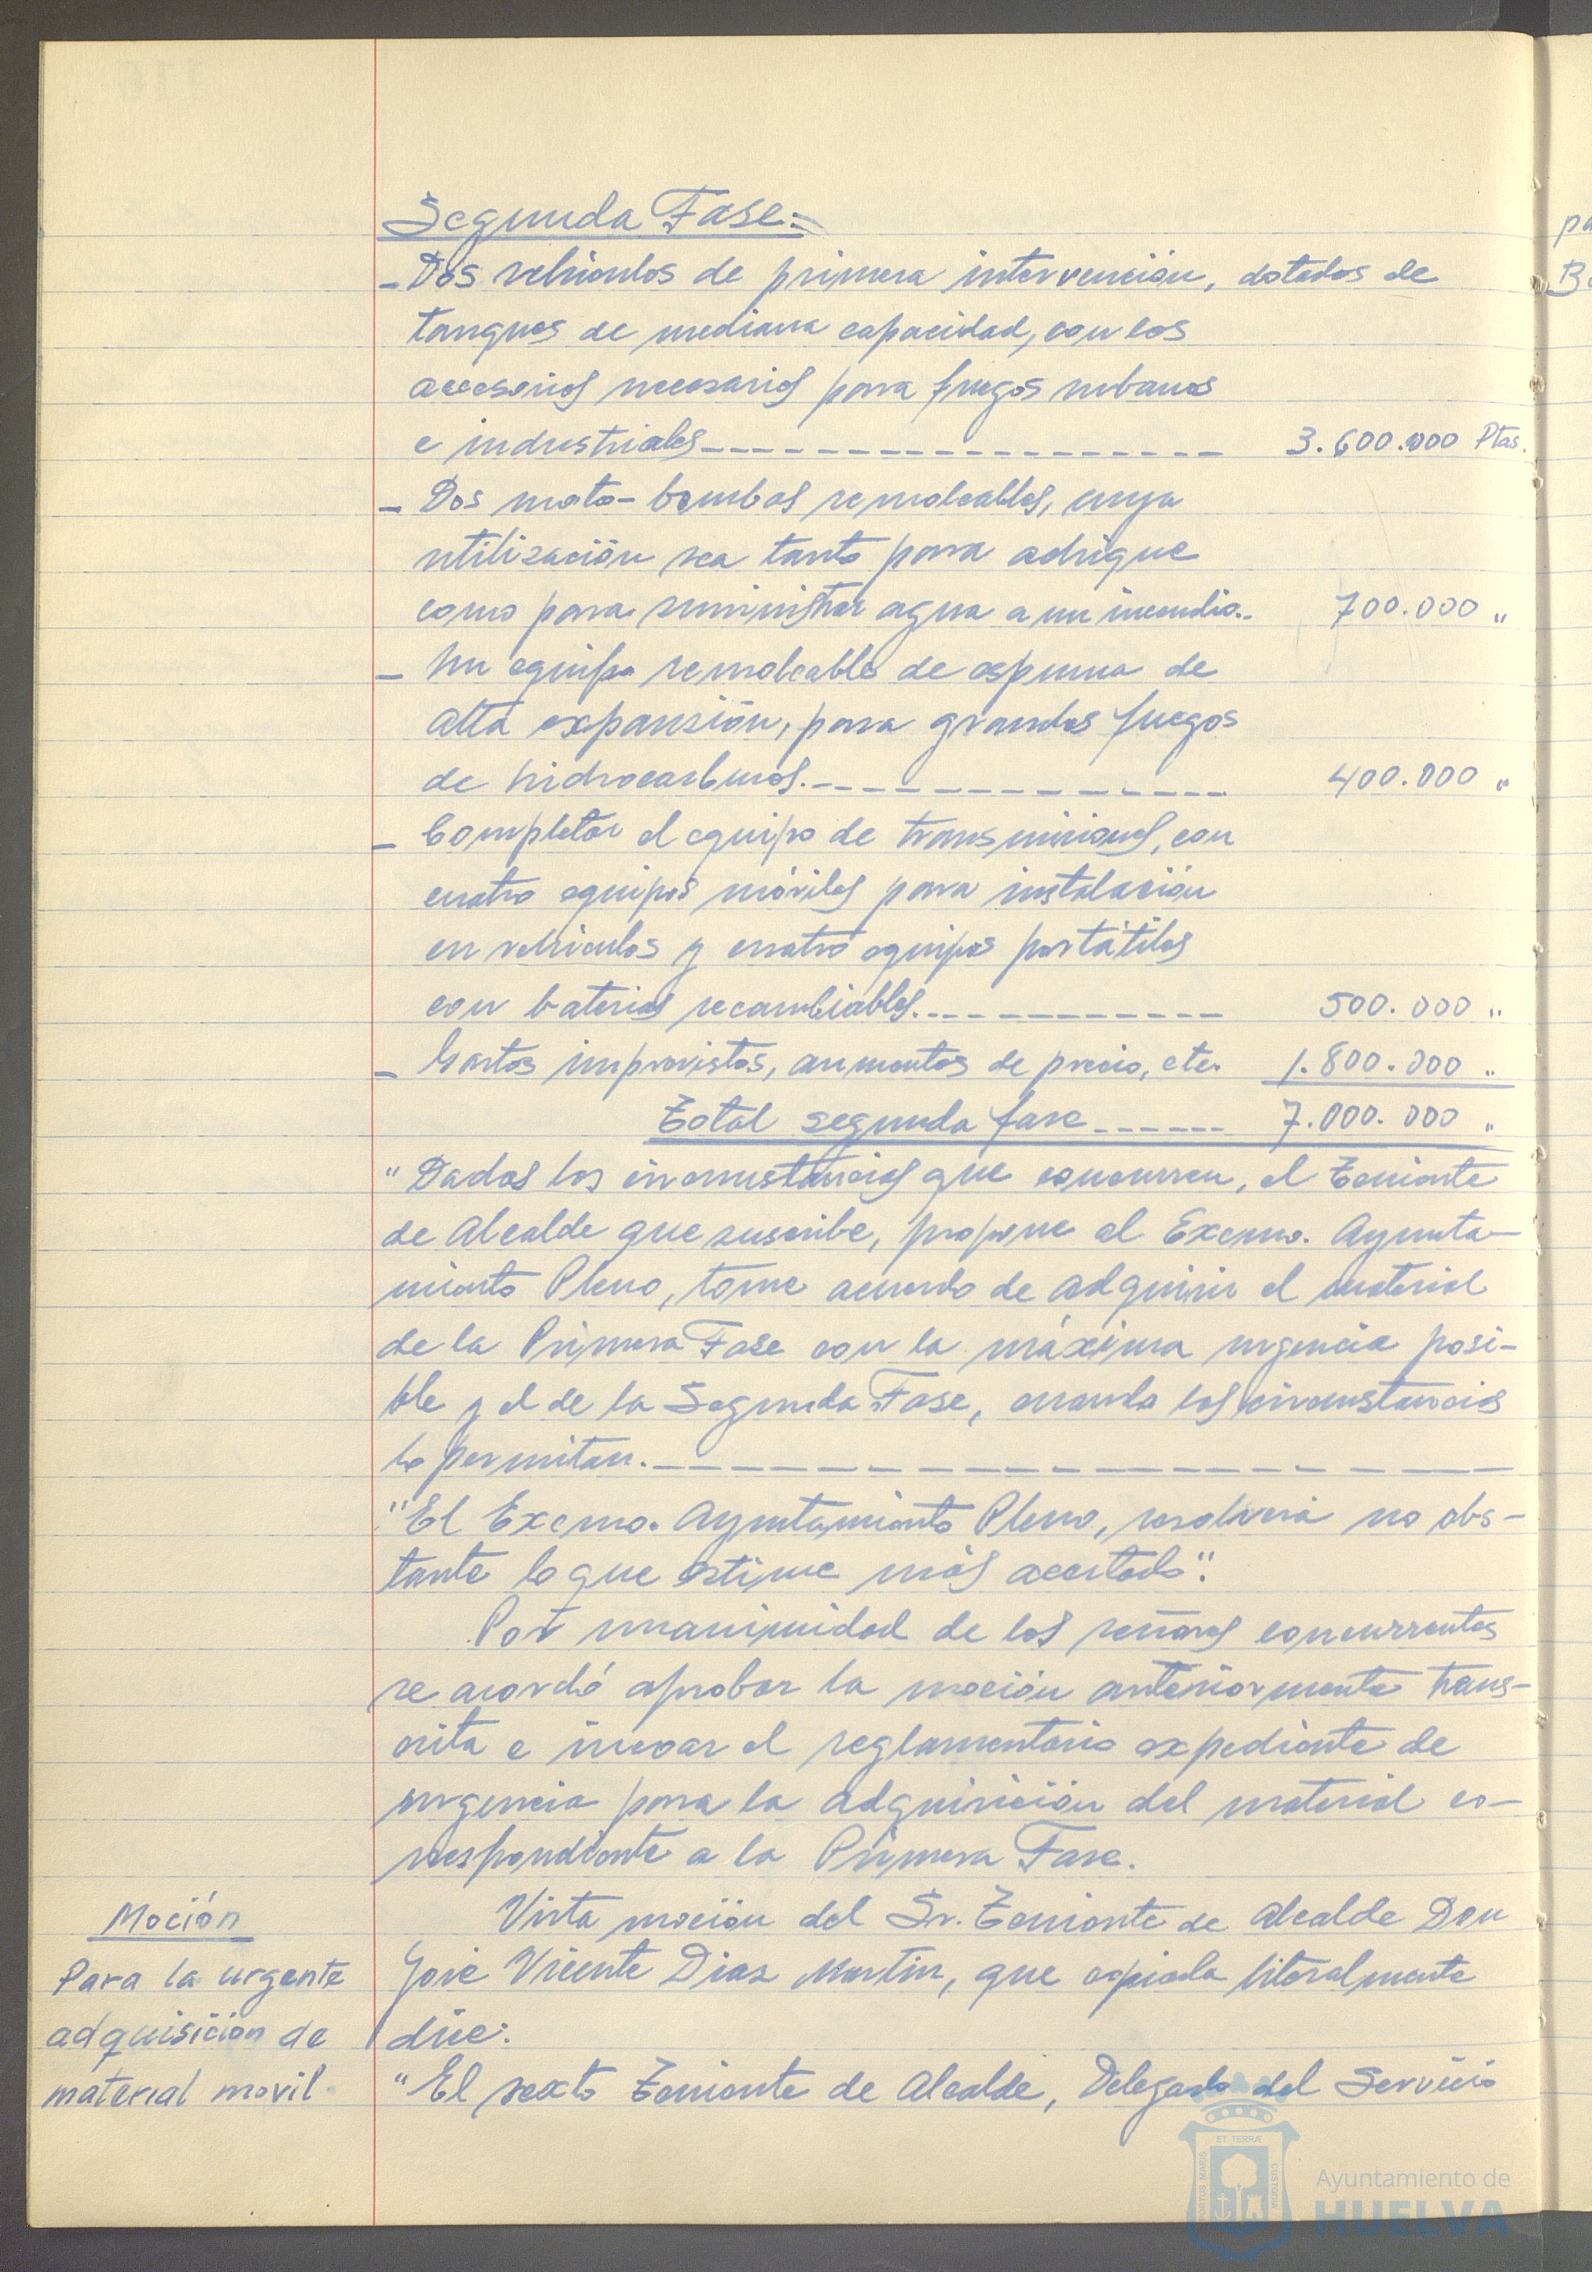 Segunda Fase=
- Dos vehiculos de primera intervención, dotados de
tanques de mediana capacidad, con los
accesorios necesarios para fuegos urbanos
e industriales------------------ 3.600.000 Ptas.
- Dos moto-bombas remolcables, cuya
utilización sea tanto para achique
como para suministrar agua a un incendio.- 700.000 "
- Un equipo remolcable de espuma de
alta expansión, para grandes fuegos
de hidrocarburos.--------------- 400.000 "
- Completar el equipo de transmisiones, con
cuatro equipos móviles para instalación
en vehiculos y cuatro equipos portátiles
con baterias recambiables.----------- 500.000 "
- Gastos imprevistos, aumentos de precio, etc. 1.800.000 "
Total segunda fase------ 7.000.000 "
"Dadas las circunstancias que concurren, el Teniente
de Alcalde que suscribe, propone al Excmo. Ayunta-
miento Pleno, tome acuerdo de adquirir el material
de la Primera Fase con la máxima urgencia posi-
ble y el de la Segunda Fase, cuando las circunstancias
lo permitan.----------------
"El Excmo. Ayuntamiento Pleno, resolverá no obs-
tante lo que estime más acertado".
Por unanimidad de los señores concurrentes
se acordó aprobar la moción anteriormente trans-
crita e incoar el reglamentario expediente de
urgencia para la adquisición del material co-
rrespondiente a la Primera Fase.
Moción
Para la urgente
adquisición de
material movil.
Vista moción del Sr. Teniente de Alcalde Don
José Vicente Diaz Martin, que copiada literalmente
dice:
"El sexto Teniente de Alcalde, Delegado del Servicio
pa
PORTUS MARIS
ET TERRÆ
CUSTODIA
Ayuntamiento de
HUELVA